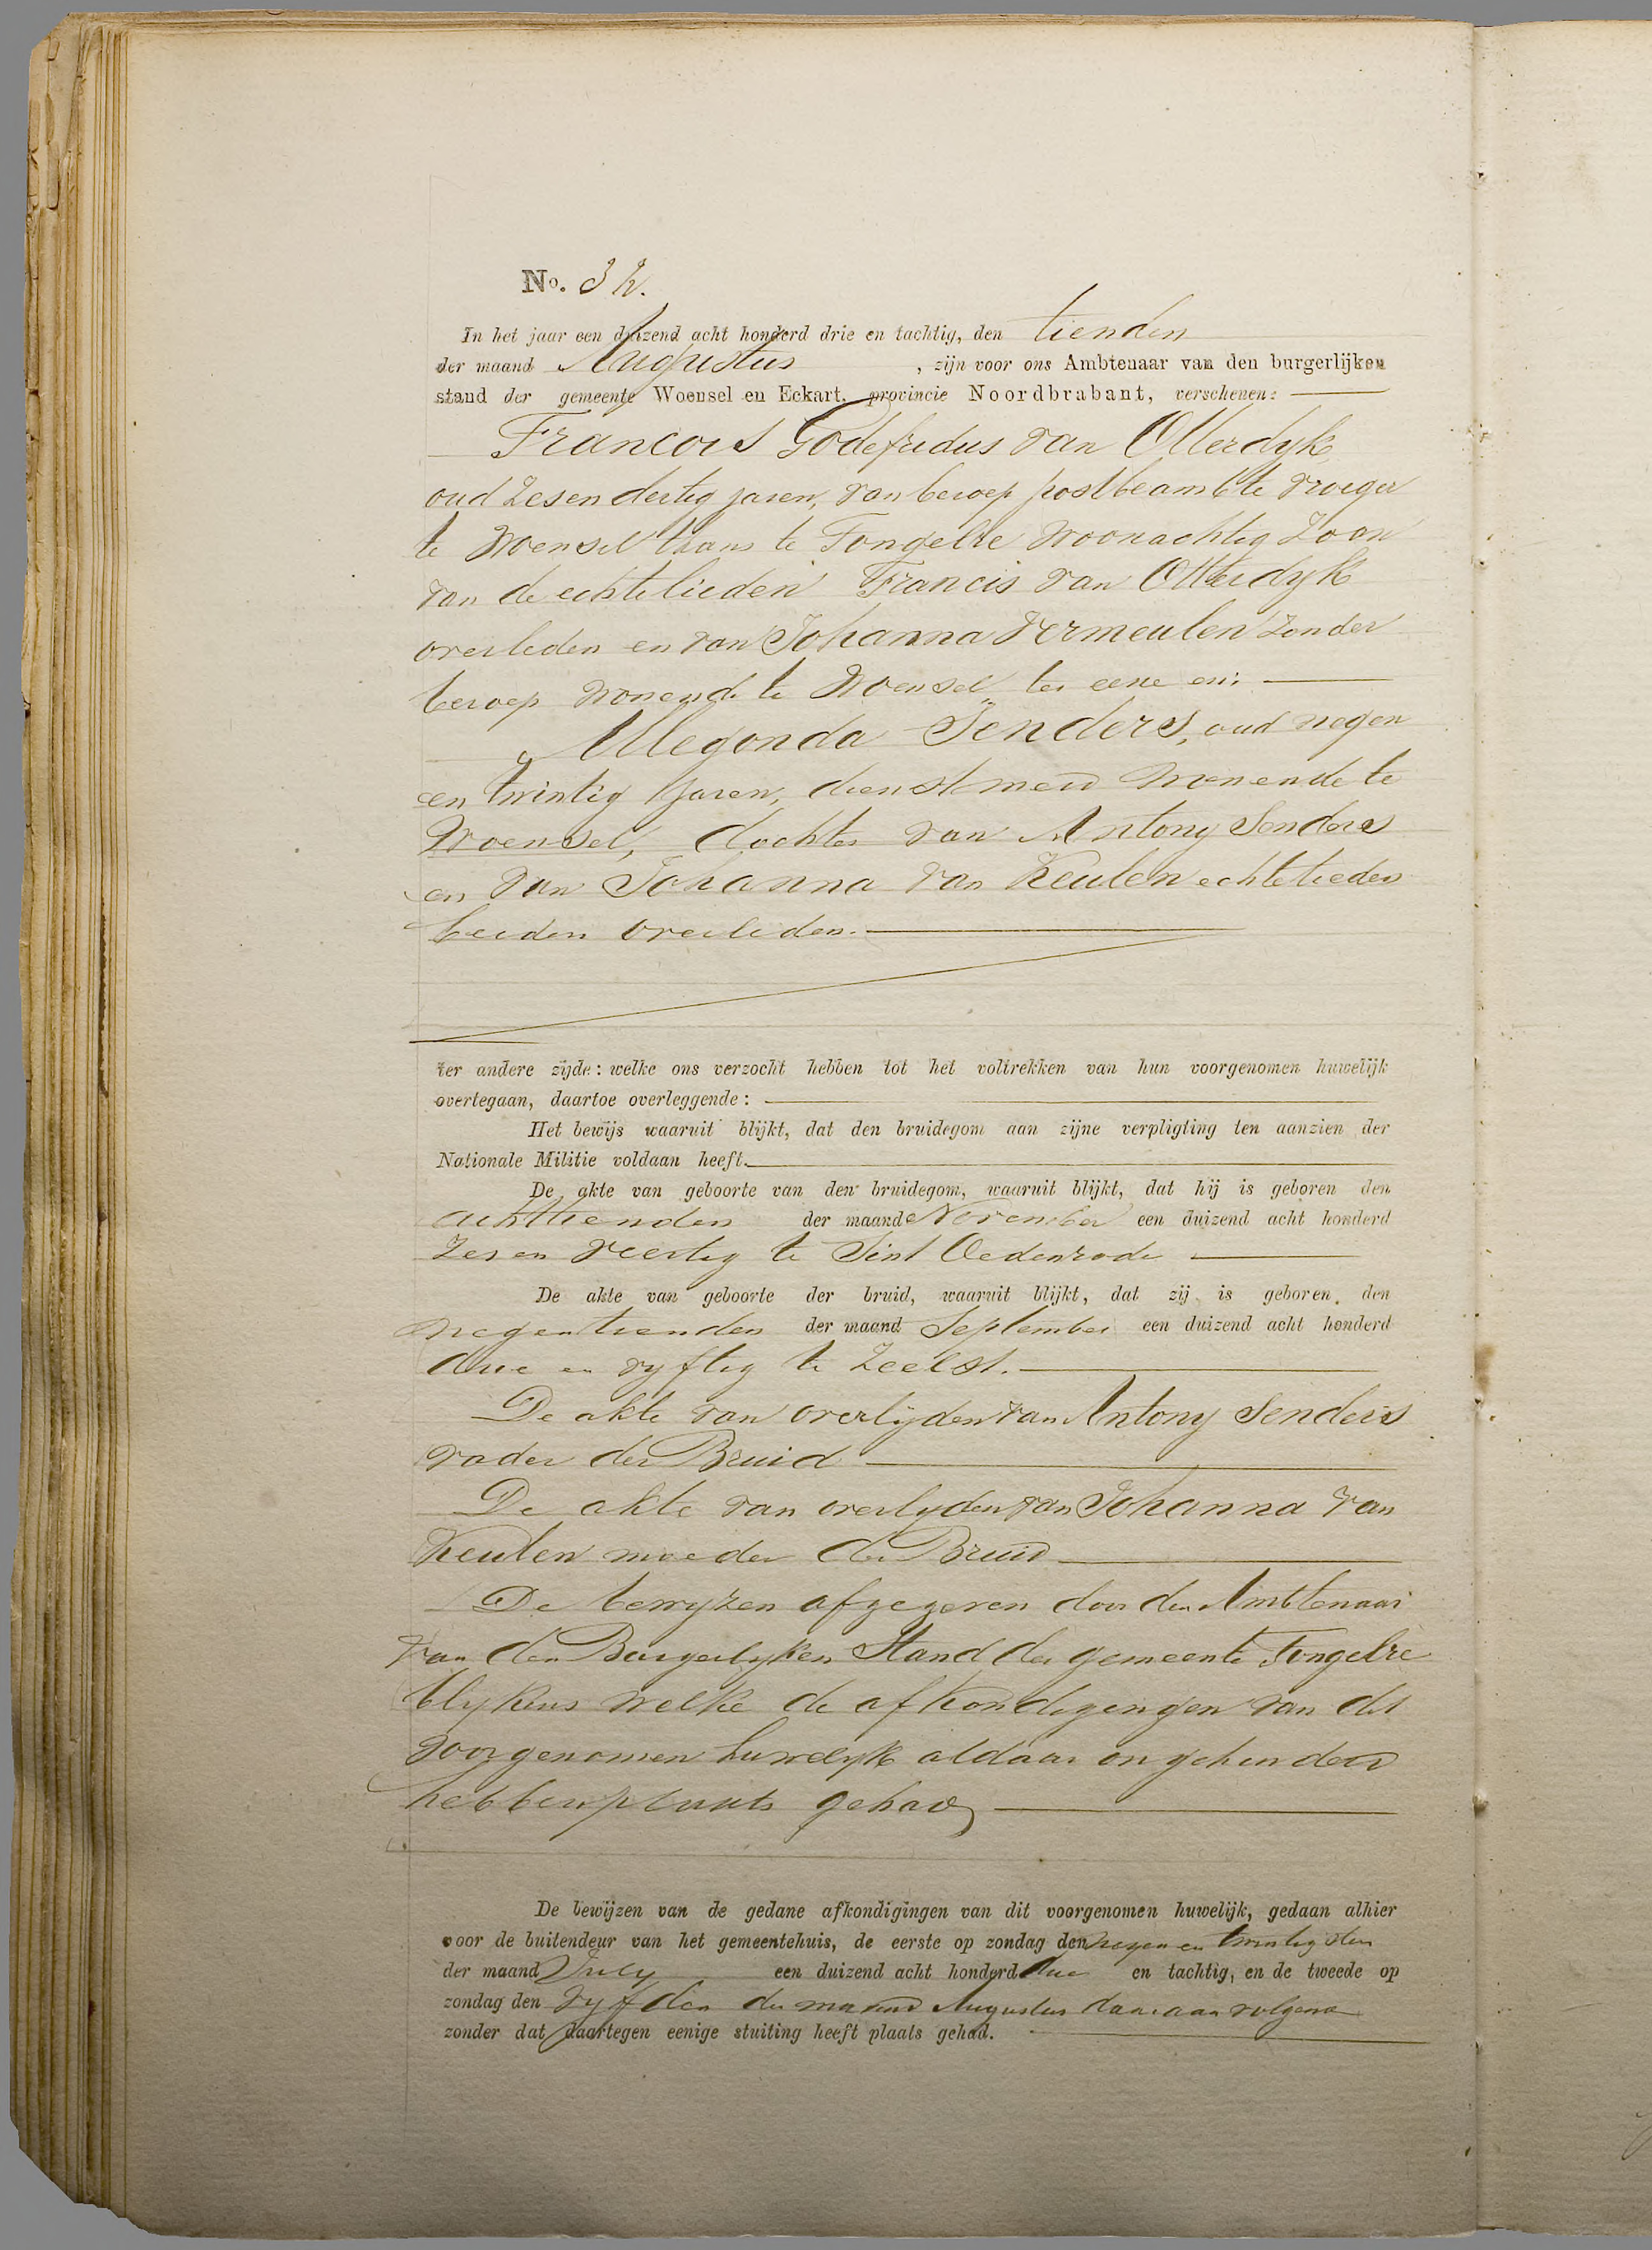 No. 32.
In het jaar een duizend acht honderd drie en tachtig, den tienden
der maand Augustus , zijn voor ons Ambtenaar van den burgerlijken
stand der gemeente Woensel en Eckart, provincie Noordbrabant, verschenen:
Francois Godefridus van Otterdyk,
oud Zesen dertig jaren, van beroep postbeambte vroeger
te Woensel thans te Tongelre woonachtig Zoon
van de echtelieden Francis van Otterdyk
overleden en van Johanna Vermeulen zonder
beroep wonende te Woensel, ter eene en:
Allegonda Senders, oud negen
en twintig Jaren, dienstmeid wonende te
Woensel, dochter van Antony Senders
en van Johanna van Keulen echtelieden
beiden overleden.
ter andere zijde: welke ons verzocht hebben tot het voltrekken van hun voorgenomen huwelijk
overtegaan, daartoe overleggende:
Het bewijs waaruit blijkt, dat den bruidegom aan zijne verpligting ten aanzien der
Nationale Militie voldaan heeft.
De akte van geboorte van den bruidegom, waaruit blijkt, dat hij is geboren den
achttienden der maand November een duizend acht honderd
Zes en veertig te Sint Oedenrode
De akte van geboorte der bruid, waaruit blijkt, dat zij is geboren den
negentienden der maand September een duizend acht honderd
drie en vyftig te Zeelst.
De akte van overlijden van Antony Senders
vader der Bruid
De akte van overlyden van Johanna van
Keulen moeder der Bruid
De bewyzen afgegeven door den Ambtenaar
van den Burgerlyken Stand der gemeente Tongelre
blykens welke de afkondigingen van dit
voorgenomen huwelyk aldaar ongehinderd
hebben plaats gehad
De bewijzen van de gedane afkondigingen van dit voorgenomen huwelijk, gedaan alhier
voor de buitendeur van het gemeentehuis, de eerste op zondag den negen en twintigsten
der maand July een duizend acht honderd drie en tachtig, en de tweede op
zondag den vyfden der maand Augustus daaraanvolgend
zonder dat daartegen eenige stuiting heeft plaats gehad.